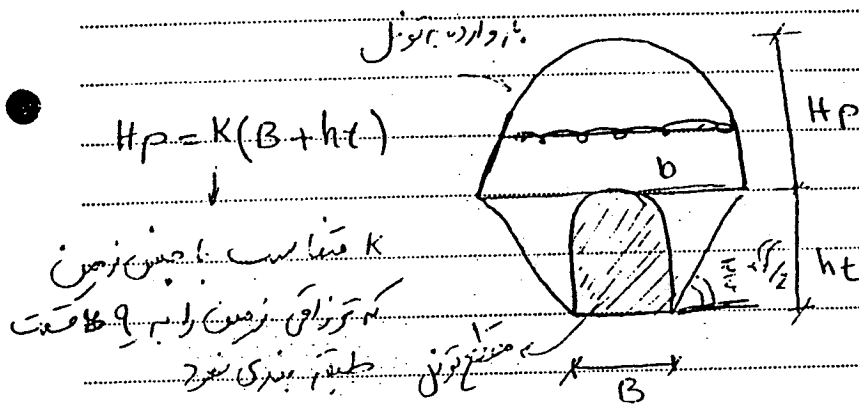 بار وارده به تونل
Hp = K(B + ht)
Hp
b
K متناسب با جنس زمین
که ترزاقی زمین را به 9 قسمت
طبقه بندی نمود
ht
مقطع تونل
B